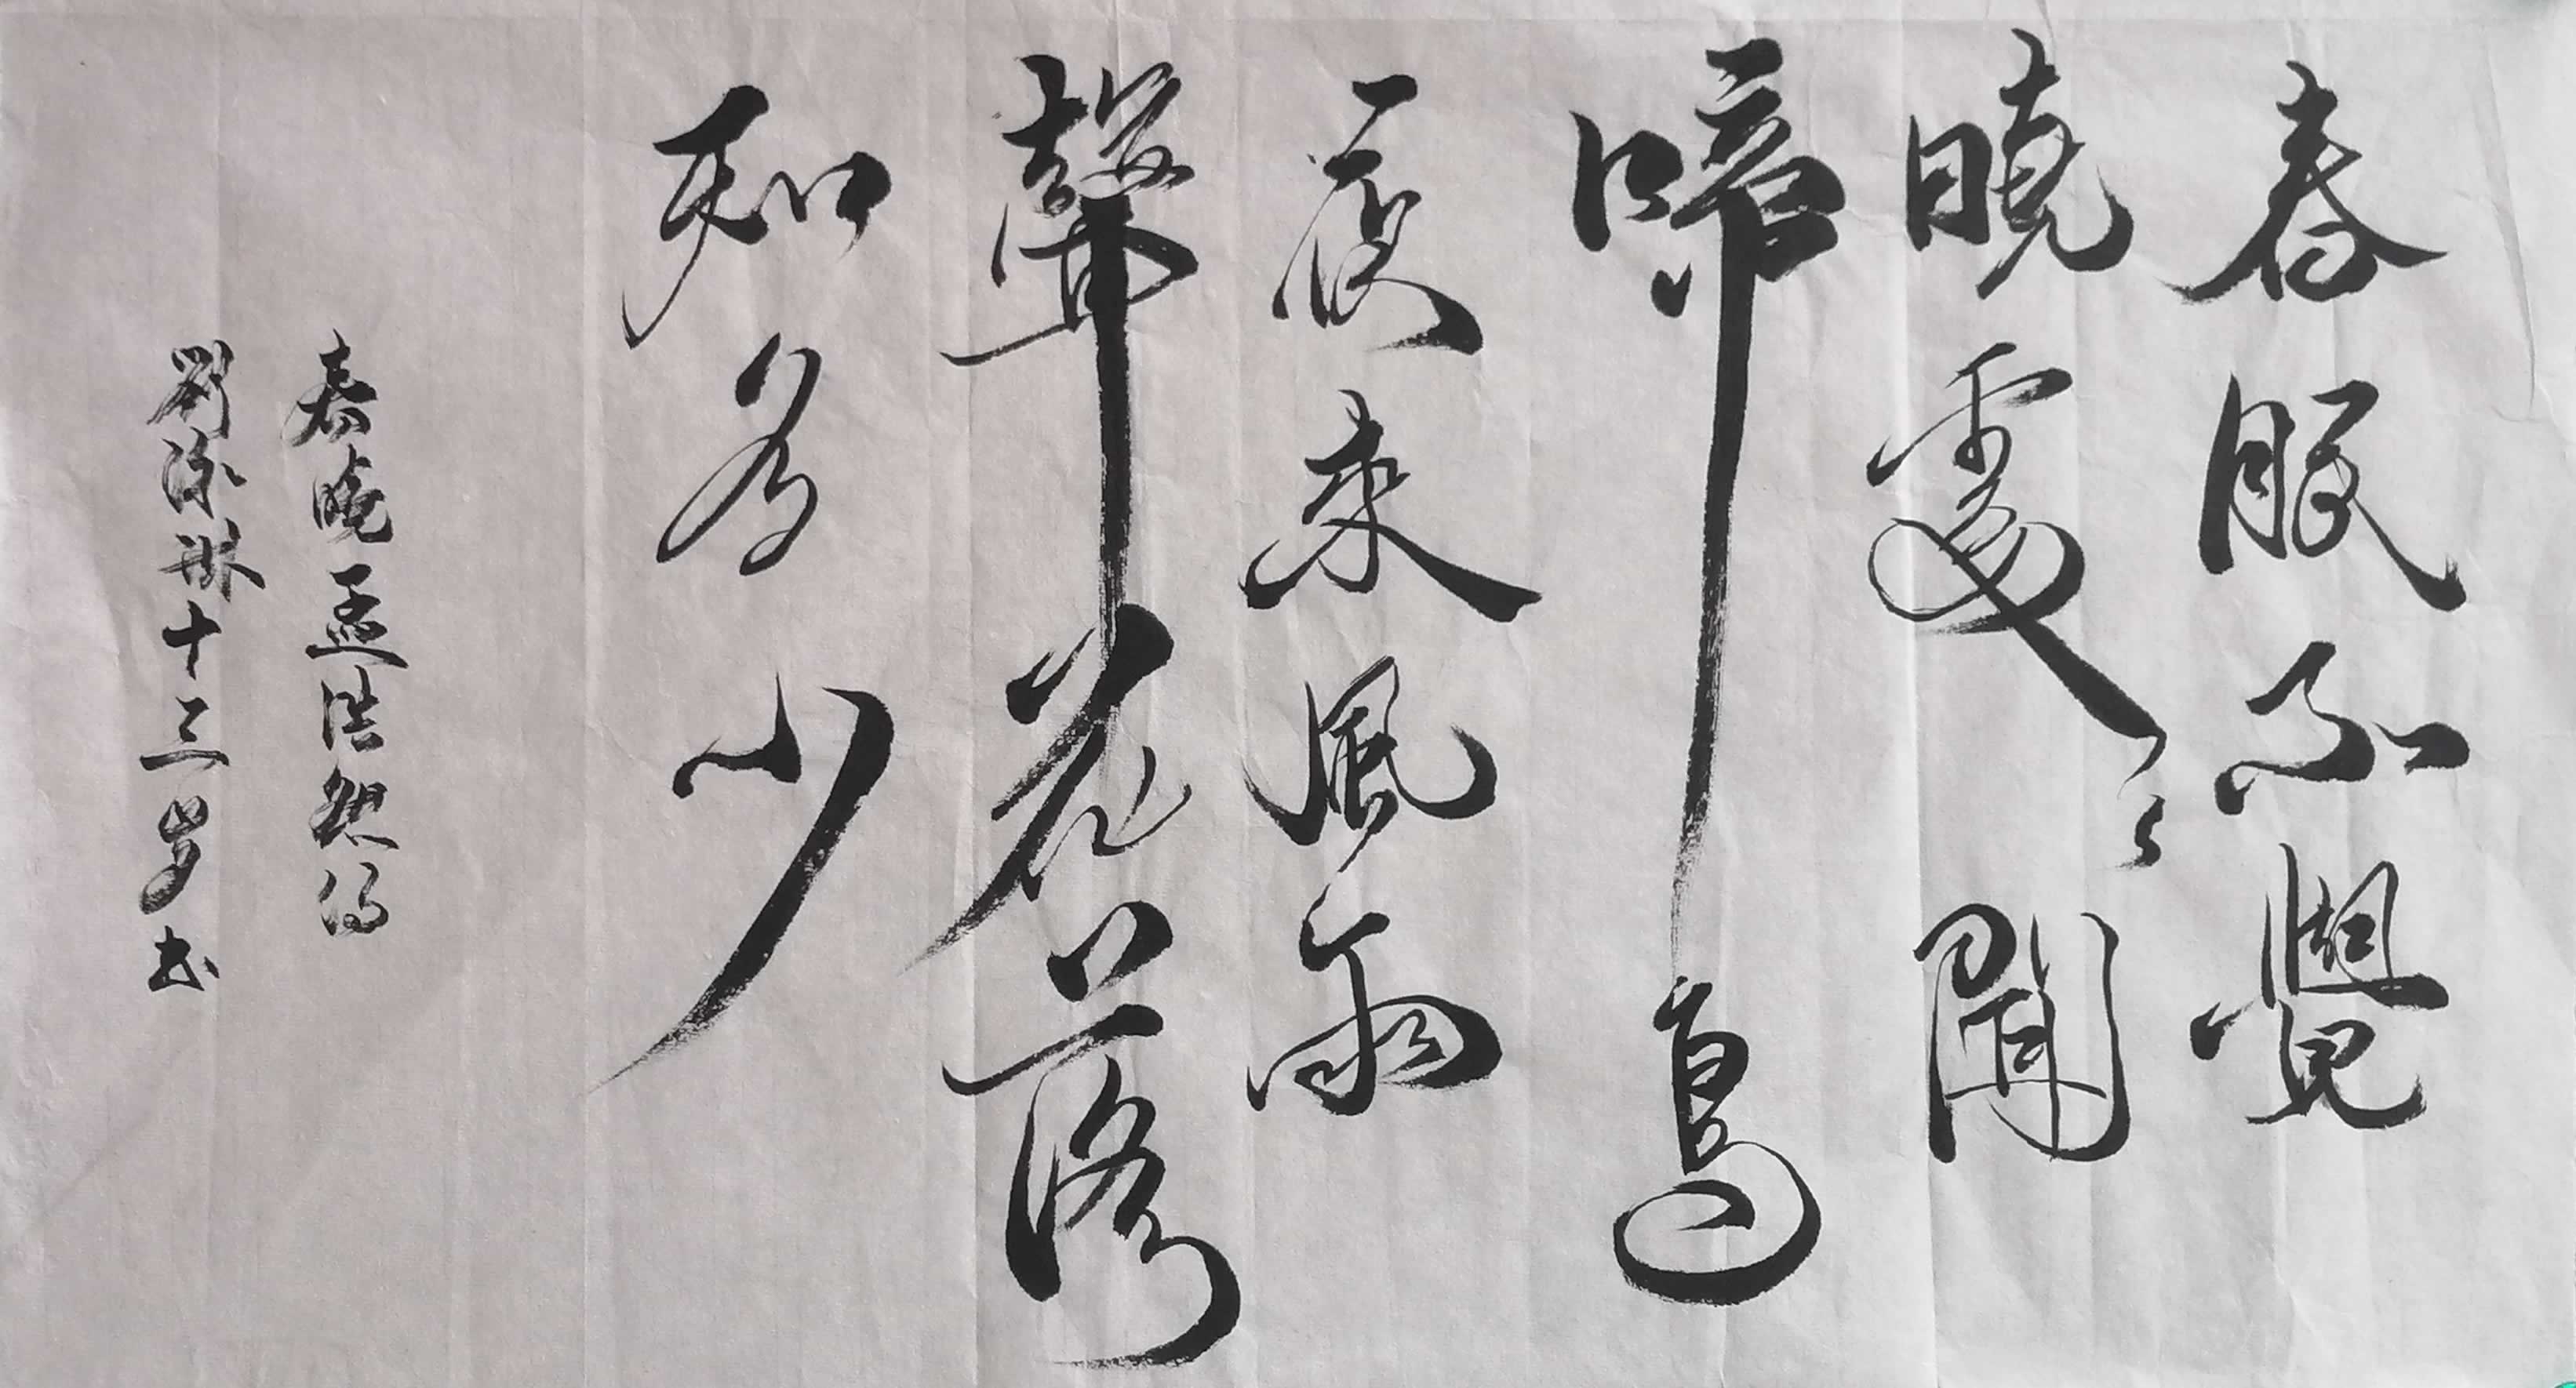 春眠不覺
曉處々聞
啼鳥
夜来風雨
聲花落
知多少
春曉孟浩然詩
劉琳十三岁书